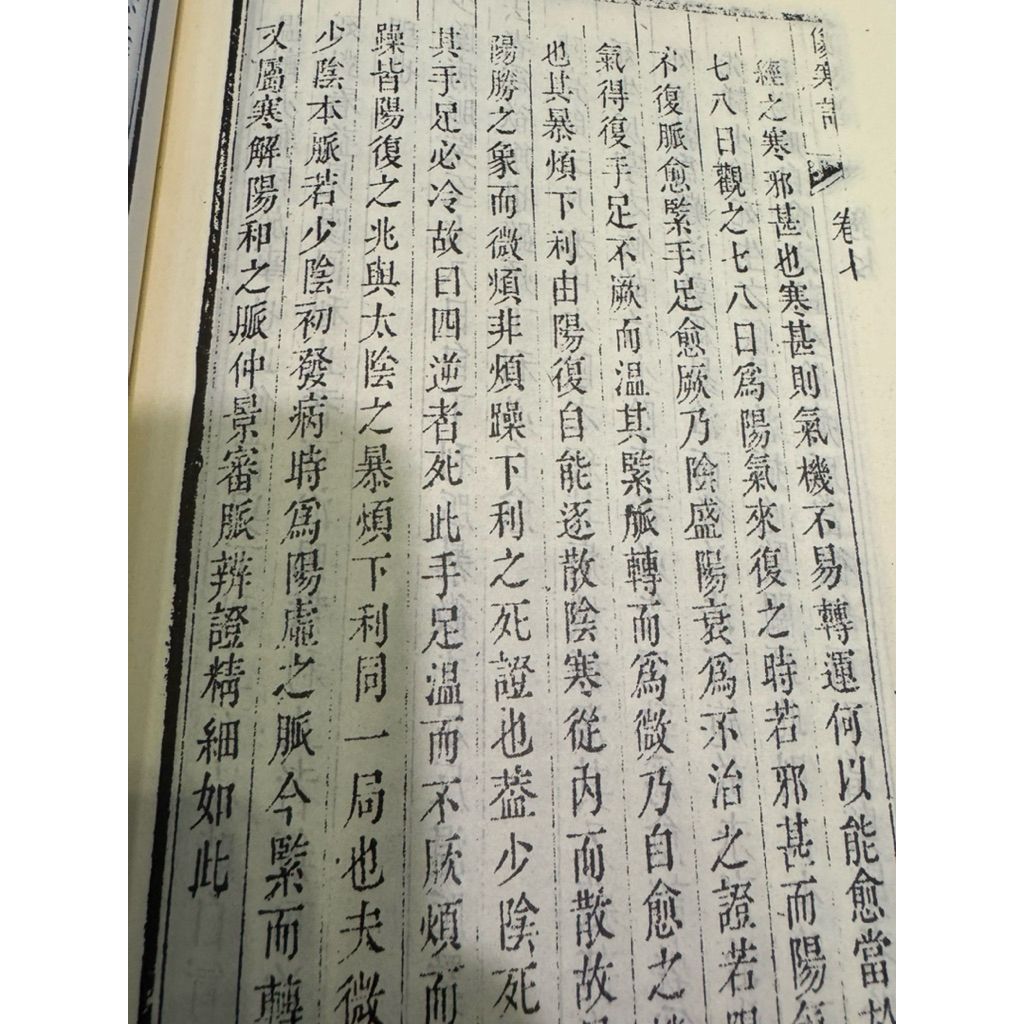 傷寒論
卷七
經之寒邪甚也寒甚則氣機不易轉運何以能愈當於
七八日觀之七八日爲陽氣來復之時若邪甚而陽氣
不復脈愈緊手足愈厥乃陰盛陽衰爲不治之證若陽
氣得復手足不厥而溫其緊脈轉而爲微乃自愈之
也其暴煩下利由陽復自能逐散陰寒從內而散故
陽勝之象而微煩非煩躁下利之死證也葢少陰死
其手足必冷故曰四逆者死此手足溫而不厥煩而
躁皆陽復之兆與太陰之暴煩下利同一局也夫微
少陰本脈若少陰初發病時爲陽虛之脈今緊而轉
又屬寒解陽和之脈仲景審脈辨證精細如此